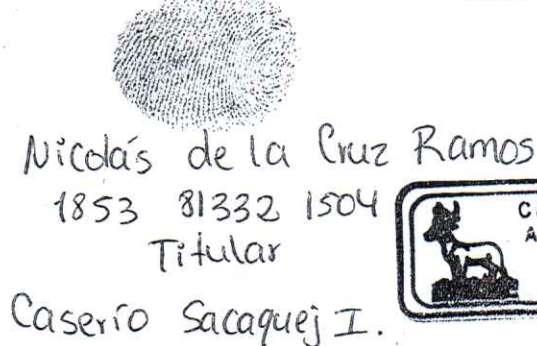 Nicolás de la Cruz Ramos
1853 81332 1504
Titular
Caserío Sacaquej I.